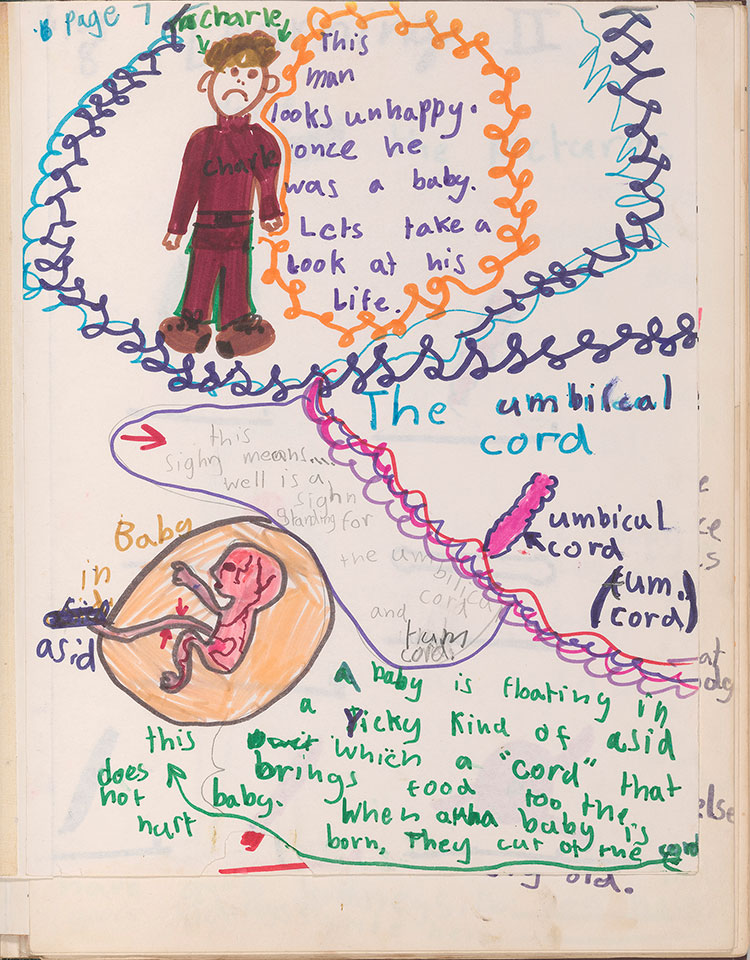 page 7
charle
This
man
looks unhappy.
once he
was a baby.
Lets take a
Look at his
Life.
charle
The umbilcal
cord
this
sighn means....
well is a
sighn
standing for
the umbilical
cord
and
tum
cord.
umbical
cord
(um.
cord)
Baby
in
asid
A baby is floating in
a Yicky Kind of asid
which a "cord" that
brings food too the
baby. When a baby is
born, They cut of the cord
this
does
not
hurt
else
old.